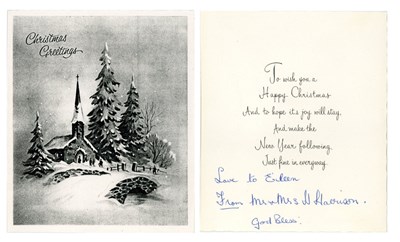 Christmas
Greetings
To wish you a
Happy Christmas
And to hope it's joy will stay,
And make the
New Year following,
Just fine in everyway.
Love to Eileen
From Mr & Mrs H Harrison.
God Bless.